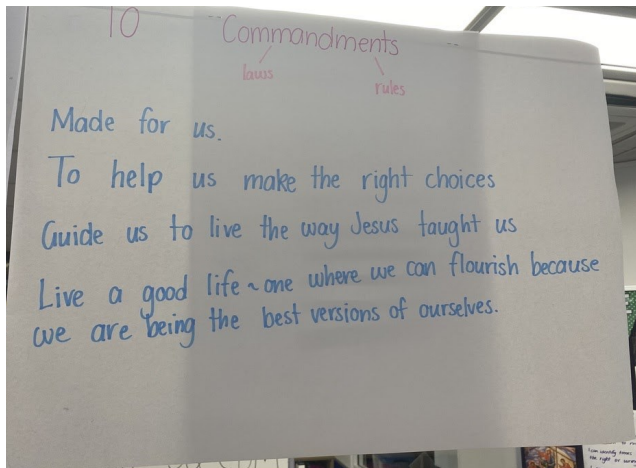 10 Commandments
laws
rules
Made for us.
To help us make the right choices
Guide us to live the way Jesus taught us
Live a good life ~ one where we can flourish because
we are being the best versions of ourselves.